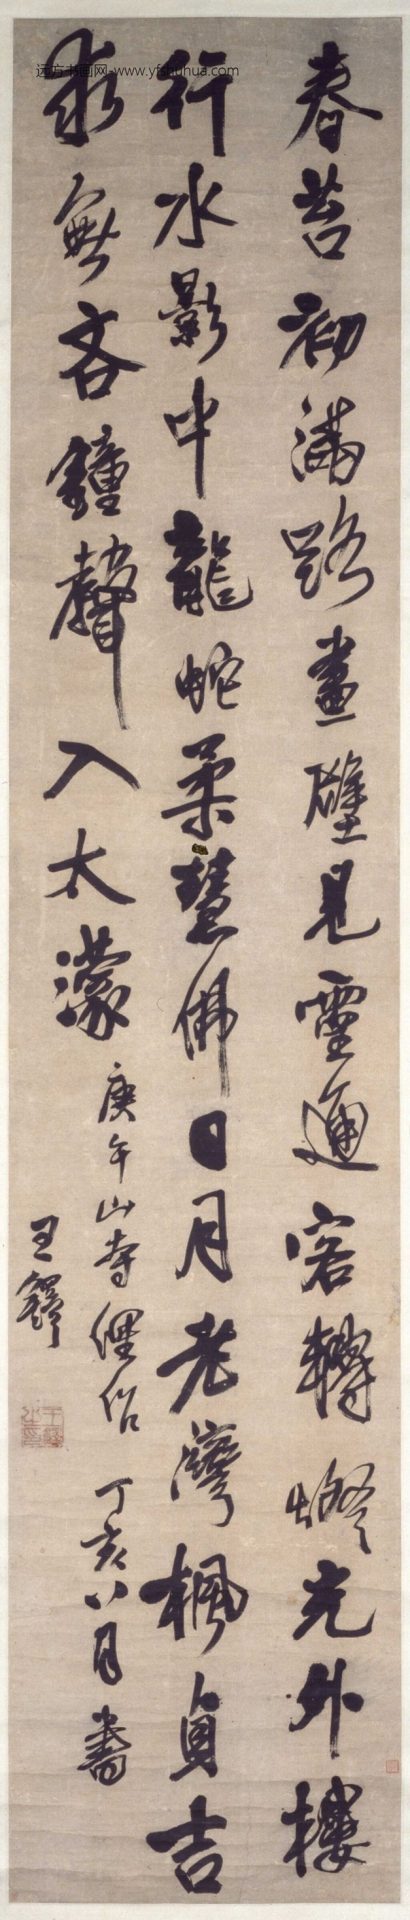 远方书画网-www.yfshuhua.com
春苔初滿路畫壁見靈通客轉燈光外樓
行水影中龍蛇柔慧佛日月老灣楓貞吉
求無吝鐘聲入太濛
庚午山寺俚俗 丁亥八月書
王鐸